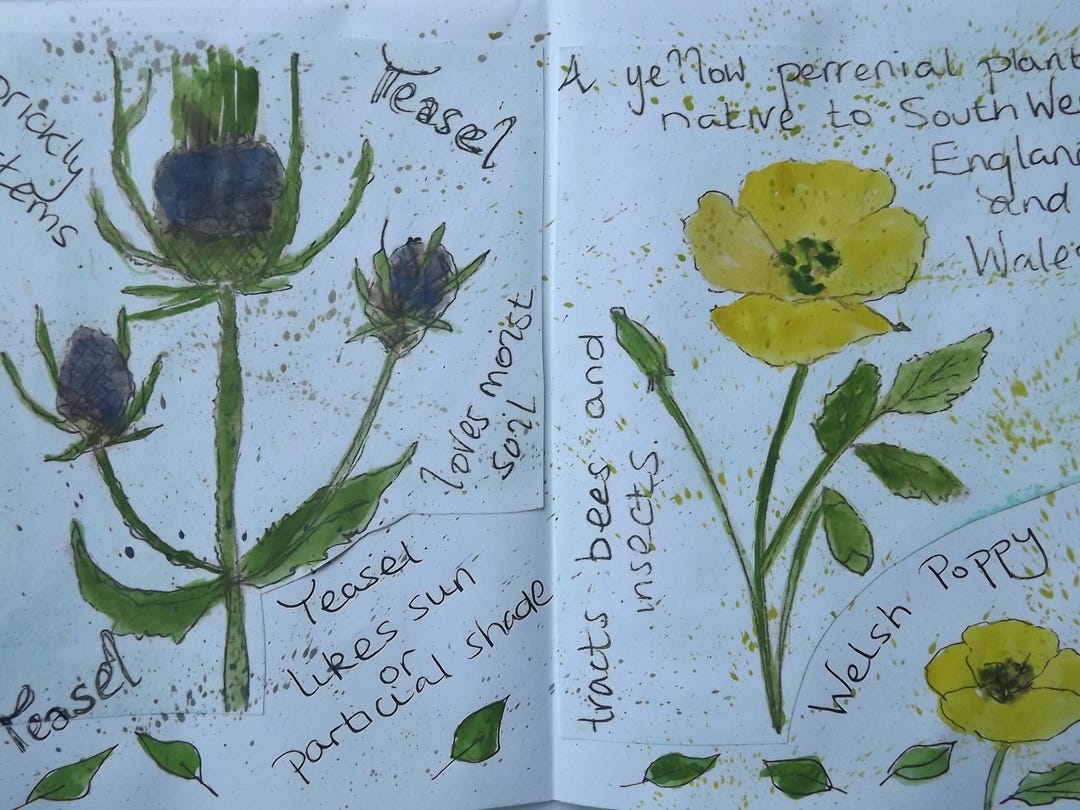 Prickly
stems
Teasel
loves moist
soil
Teasel
Teasel
likes sun
or
partical shade
A yellow perrenial plant
native to South We
England
and
Wales
tracts bees and
insects.
Welsh Poppy